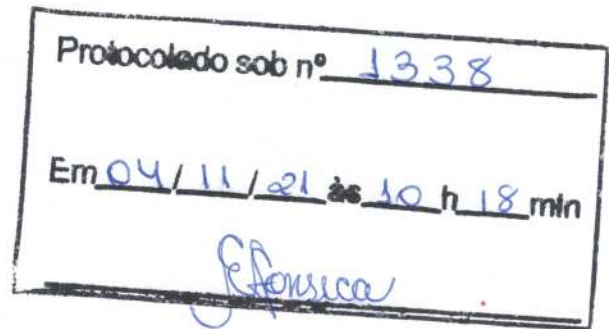 Protocolado sob nº 1338
Em 04/11/21 às 10 h 18 min